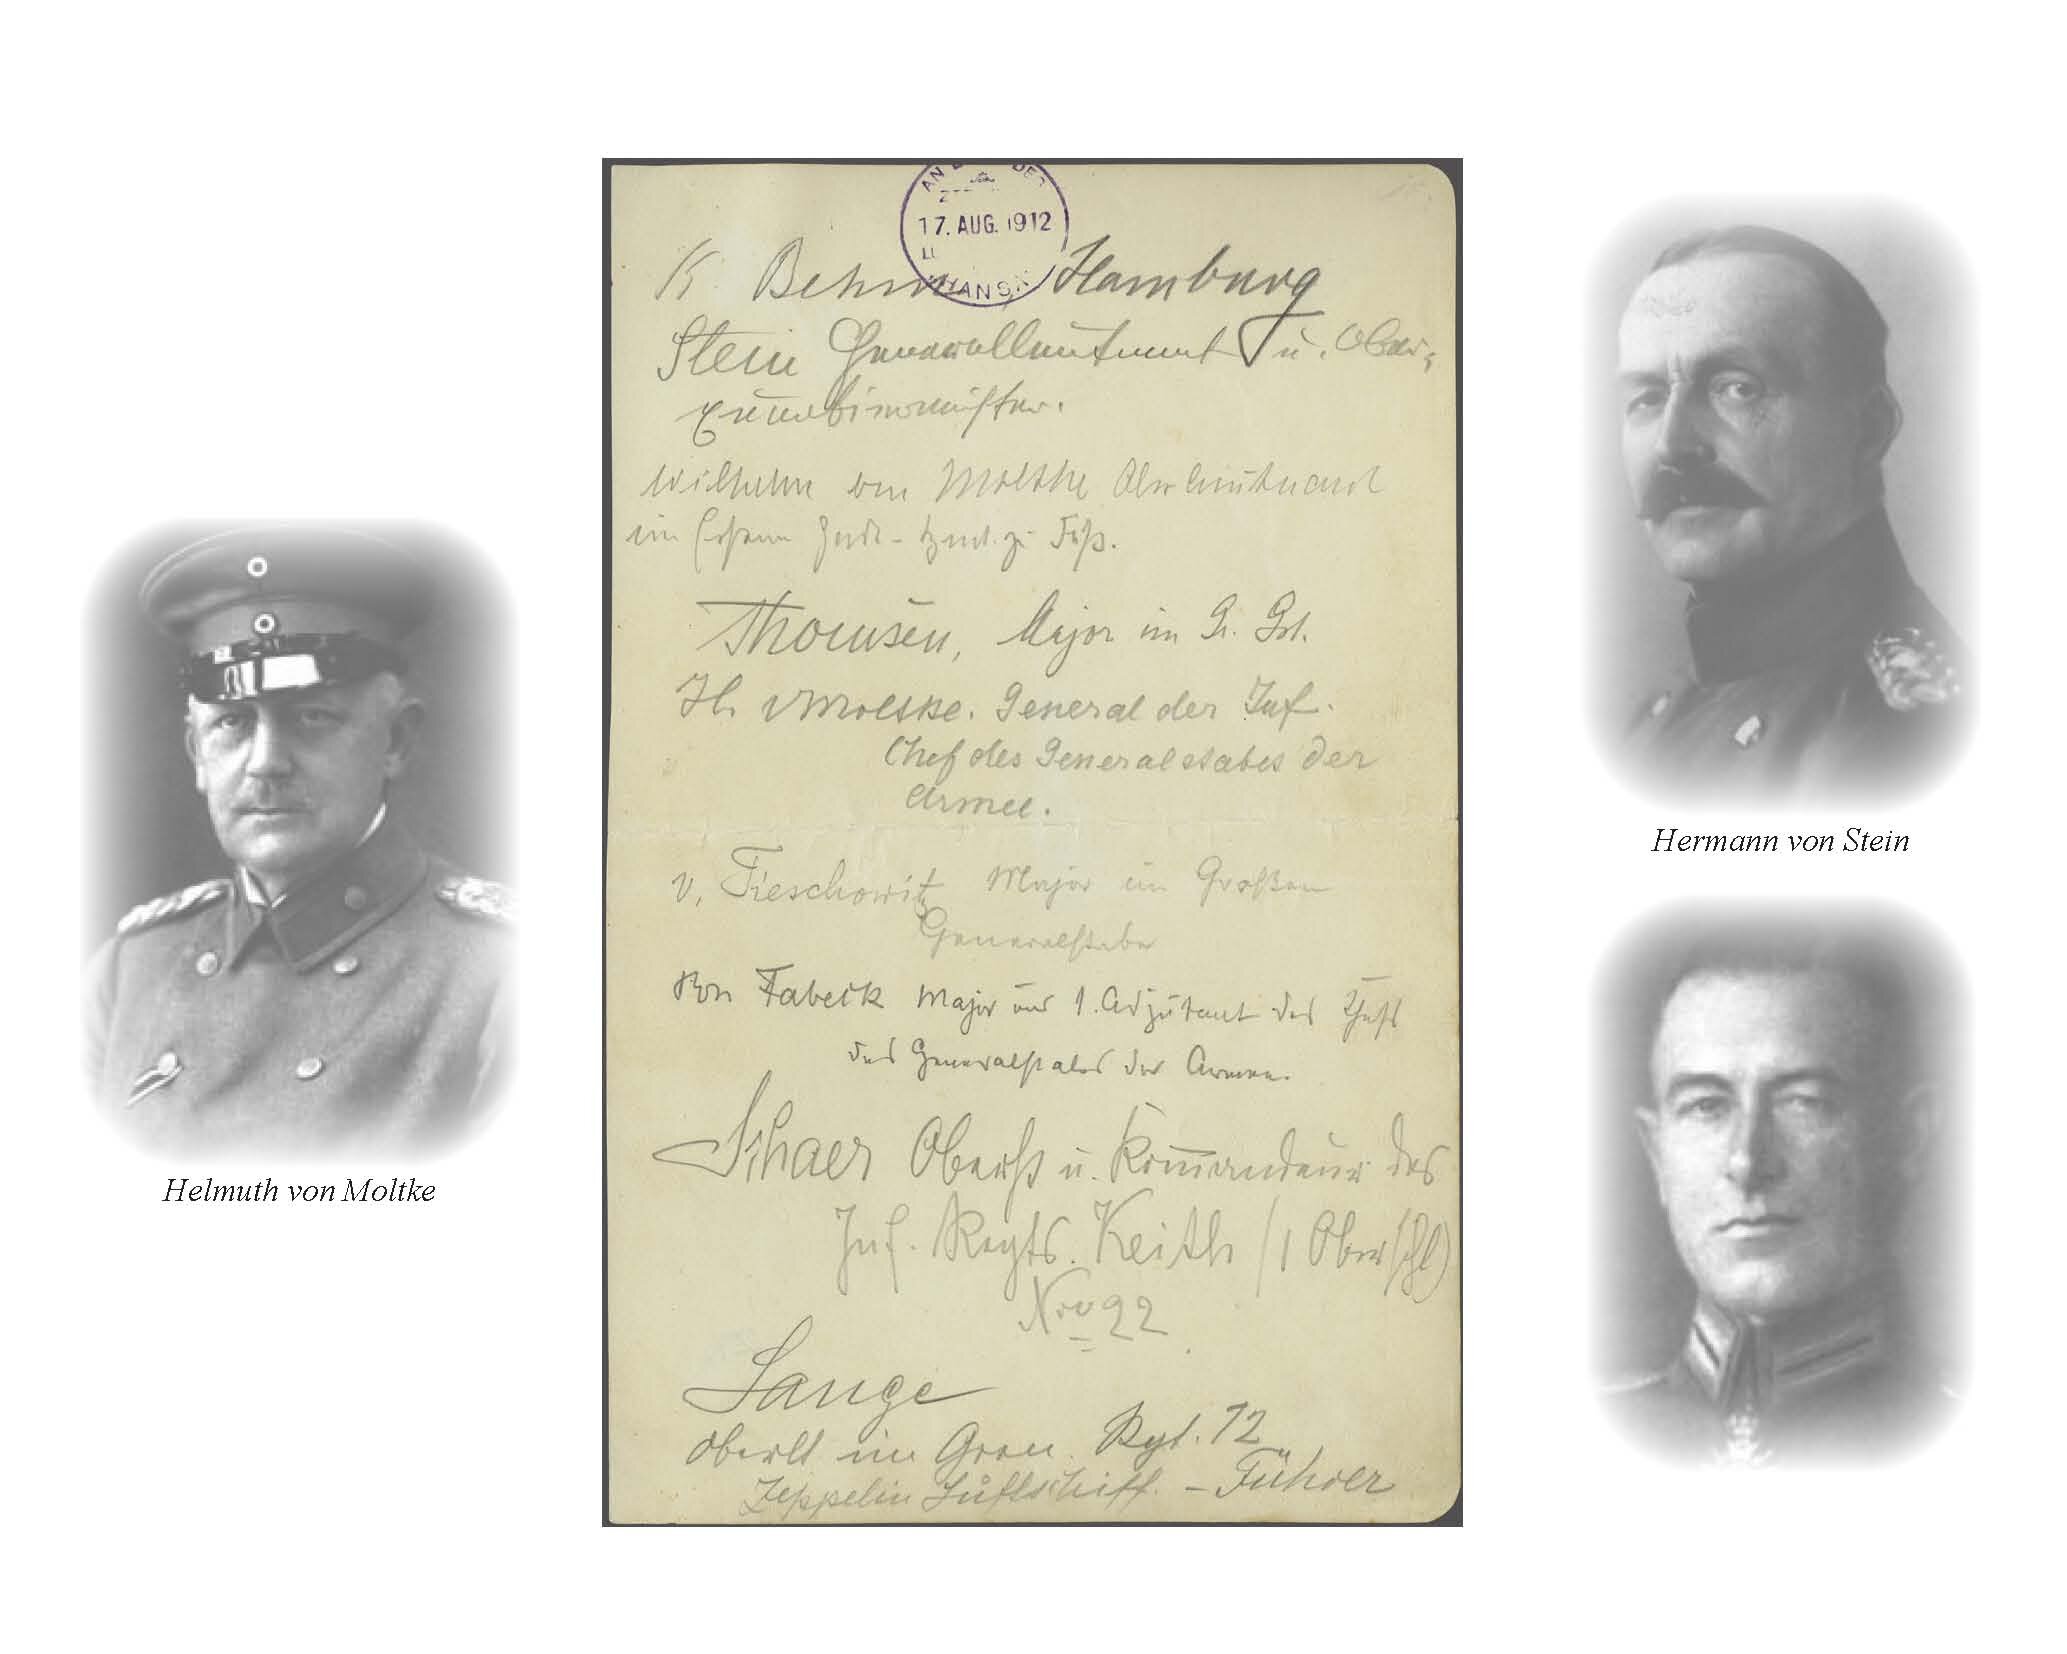 17. AUG. 1912
HANSA
K Behn Hamburg
Stein Generalleutnant u. Ober-
quartiermeister.
Wilhelm von Moltke Oberleutnant
im Ersten Garde-Regt. zu Fuß.
Thomsen, Major im Gr. Gst.
H. v Moltke. General der Inf.
Chef des Generalstabes der
Armee.
v. Tieschowitz Major im Großen
Generalstabe
Von Fabeck Major und 1. Adjutant des Chefs
des Generalstabes der Armee.
Schaer Oberst u. Kommandeur des
Inf. Regts. Keith (1 Oberschl)
Nro 22
Lange
Oberlt im Gren. Rgt. 12
Zeppelin Luftschiff. - Führer
Helmuth von Moltke
Hermann von Stein